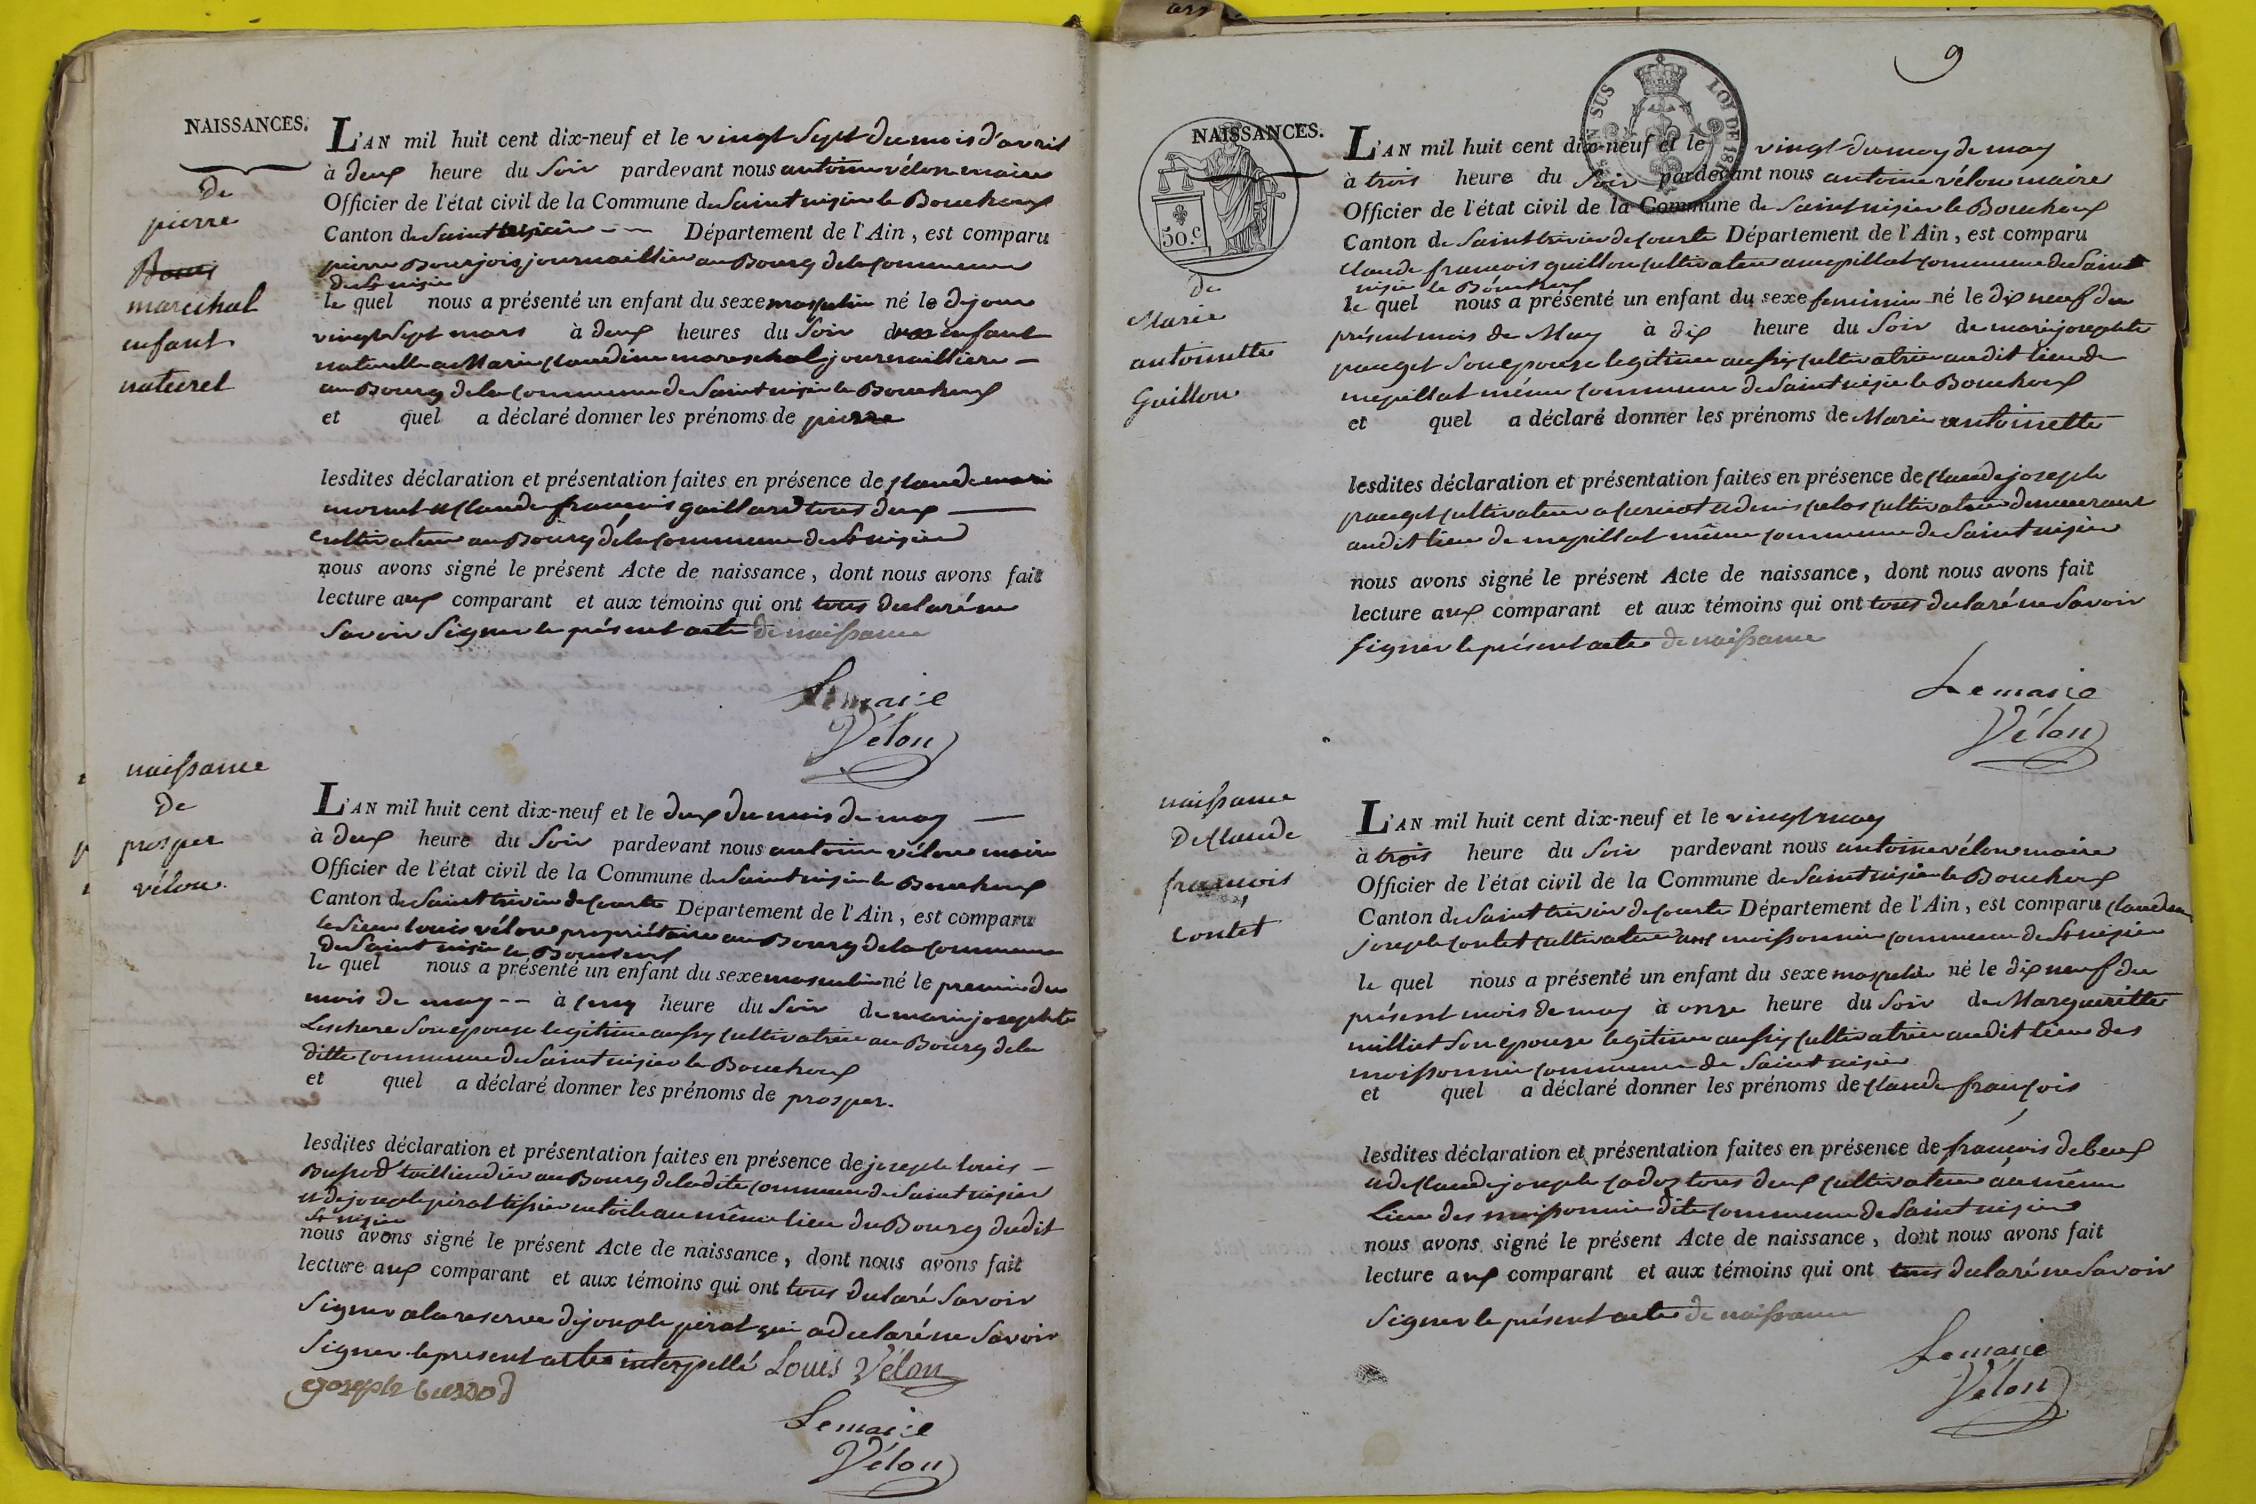 NAISSANCES.
de
pierre
marechal
enfant
naturel
L'AN mil huit cent dix-neuf et le vingt sept du mois d'avril
à deux heure du Soir pardevant nous antoine vélon maire
Officier de l'état civil de la Commune de Saint nisier le Bouchoux
Canton de Saint Département de l'Ain, est comparu
pierre Bourjois journaillier au Bourg de la commune
de St nisier
le quel nous a présenté un enfant du sexe masculin né le dejour
vingt Sept mars à deux heures du Soir enfant
naturelle a Marie Claudine mareschal journailliere
au Bourg de la commune de Saint nisier le Bouchoux
et quel a déclaré donner les prénoms de pierre
lesdites déclaration et présentation faites en présence de Claude marie
mornet et Claude françois gaillard tous deux
cultivateur au Bourg de la commune de St nisier
nous avons signé le présent Acte de naissance, dont nous avons fait
lecture aux comparant et aux témoins qui ont tous declaré ne
Savoir Signer le présent acte de naissance
Lemaire
Vélon
naissance
de
prosper
vélon.
L'AN mil huit cent dix-neuf et le deux du mois de may
à deux heure du Soir pardevant nous antoine vélon maire
Officier de l'état civil de la Commune de Saint nisier le Bouchoux
Canton de Saint trivier de Courte Département de l'Ain, est comparu
le Sieur louis vélon propriétaire au Bourg de la commune
de Saint nisier le Bouchoux
le quel nous a présenté un enfant du sexe masculin né le premier du
mois de may à cinq heure du Soir de marie josephte
Leschere Son epouse legitime aussy cultivatrice au Bourg de la
ditte commune de Saint nisier le Bouchoux
et quel a déclaré donner les prénoms de prosper.
lesdites déclaration et présentation faites en présence de joseph louis
Bussod taillieudier au Bourg de la dite commune de Saint nisier
et de joseph pirat tissier en toile au même lieu du Bourg dudit
St nisier
nous avons signé le présent Acte de naissance, dont nous avons fait
lecture aux comparant et aux témoins qui ont tous declaré Savoir
Signer a la reserve de joseph pirat qui a declaré ne Savoir
Signer le present acte interpellé Louis Vélon
Joseph bussod
Lemaire
Vélon
9
EN SUS LOI DE 181
50.c
NAISSANCES.
de
Marie
antoinette
Guillon
L'AN mil huit cent dix-neuf et le vingt du moy de may
à trois heure du Soir pardevant nous antoine vélon maire
Officier de l'état civil de la Commune de Saint nisier le Bouchoux
Canton de Saint trivier de Courte Département de l'Ain, est comparu
Claude francois guillon cultivateur a mepillat commune de Saint
nisier le Bouchoux
le quel nous a présenté un enfant du sexe feminin né le dix neuf du
présent mois de May à dix heure du Soir de marie josephte
pauget Son epouse legitime aussy cultivatrice audit lieu de
mepillat même commune de Saint nisier le Bouchoux
et quel a déclaré donner les prénoms de Marie antoinette
lesdites déclaration et présentation faites en présence de Claude joseph
pauget cultivateur a et denis cultivateur demeurant
audit lieu de mepillat même commune de Saint nisier
nous avons signé le présent Acte de naissance, dont nous avons fait
lecture aux comparant et aux témoins qui ont tous declaré ne Savoir
signer le présent acte de naissance
Lemaire
Vélon
naissance
De Claude
françois
Contet
L'AN mil huit cent dix-neuf et le vingt may
à trois heure du Soir pardevant nous antoine vélon maire
Officier de l'état civil de la Commune de Saint nisier le Bouchoux
Canton de Saint trivier de Courte Département de l'Ain, est comparu Claude
joseph Contet cultivateur aux moissonnier commune de St nisier
le quel nous a présenté un enfant du sexe masculin né le dix neuf du
présent mois de may à onze heure du Soir de Margueritte
milliet Son epouse legitime aussy cultivatrice audit lieu des
moissonnier commune de Saint nisier
et quel a déclaré donner les prénoms de Claude françois
lesdites déclaration et présentation faites en présence de françois debeux
et de Claude joseph cadoz tous deux cultivateur au même
Lieu des moissonnier dite commune de Saint nisier
nous avons signé le présent Acte de naissance, dont nous avons fait
lecture aux comparant et aux témoins qui ont tous declaré ne Savoir
Signer le présent acte de naissance
Lemaire
Vélon